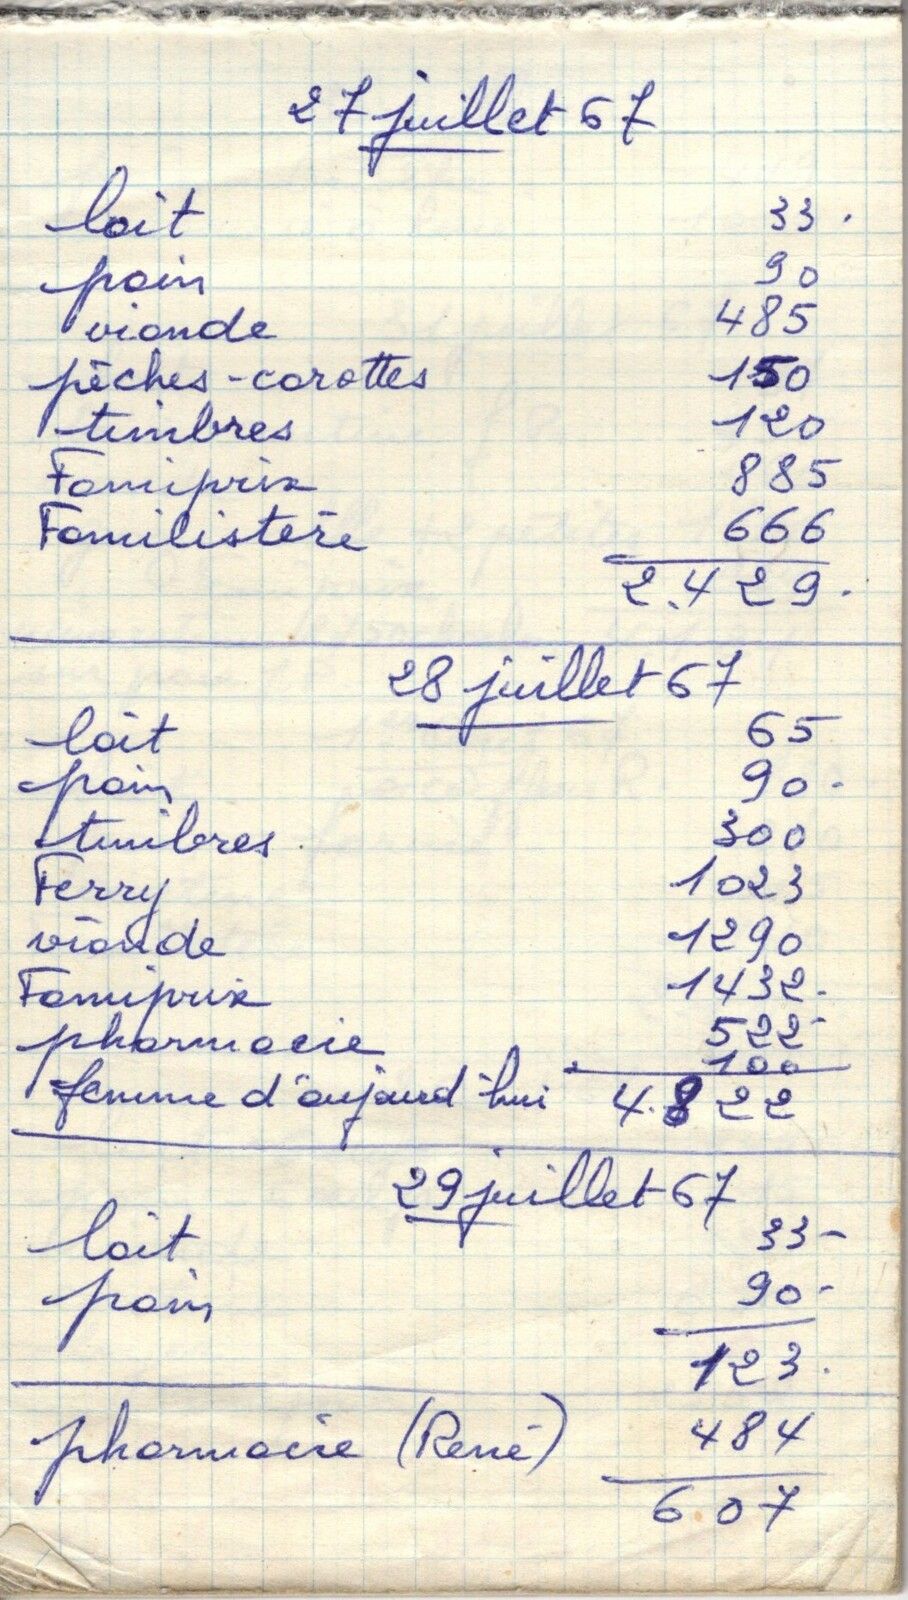 27 juillet 67
lait 33.
pain 90
viande 485
pêches-carottes 150
timbres 120
Famiprix 885
Familistère 666
2.429.
28 juillet 67
lait 65
pain 90.
timbres 300
Ferry 1023
viande 1290
Famiprix 1432.
pharmacie 522-
100
femme d'aujourd'hui 4.822
29 juillet 67
lait 33-
pain 90-
123.
pharmacie (René) 484
607